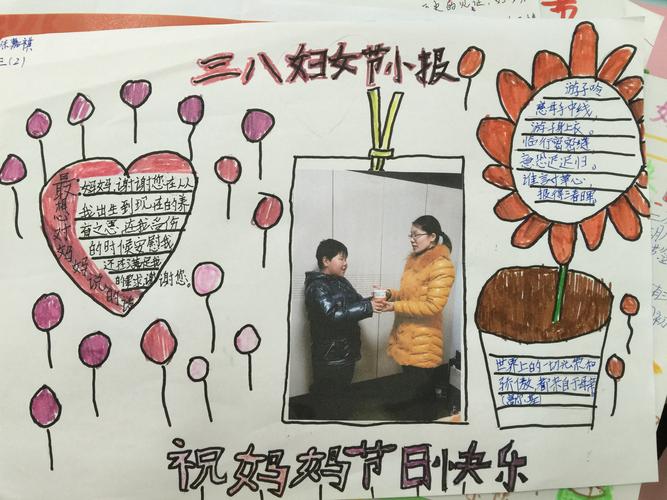 三(2)
三八妇女节小报
最想对妈妈说的话
妈妈,谢谢您在从
我出生到现在的养
育之恩,在我受伤
的时候安慰我
还过满足我
的要求谢谢您。
游子吟
慈母手中线,
游子身上衣。
临行密密缝
意恐迟迟归。
谁言寸草心,
报得三春晖
世界上的一切光荣和
骄傲,都来自于母亲
祝妈妈节日快乐